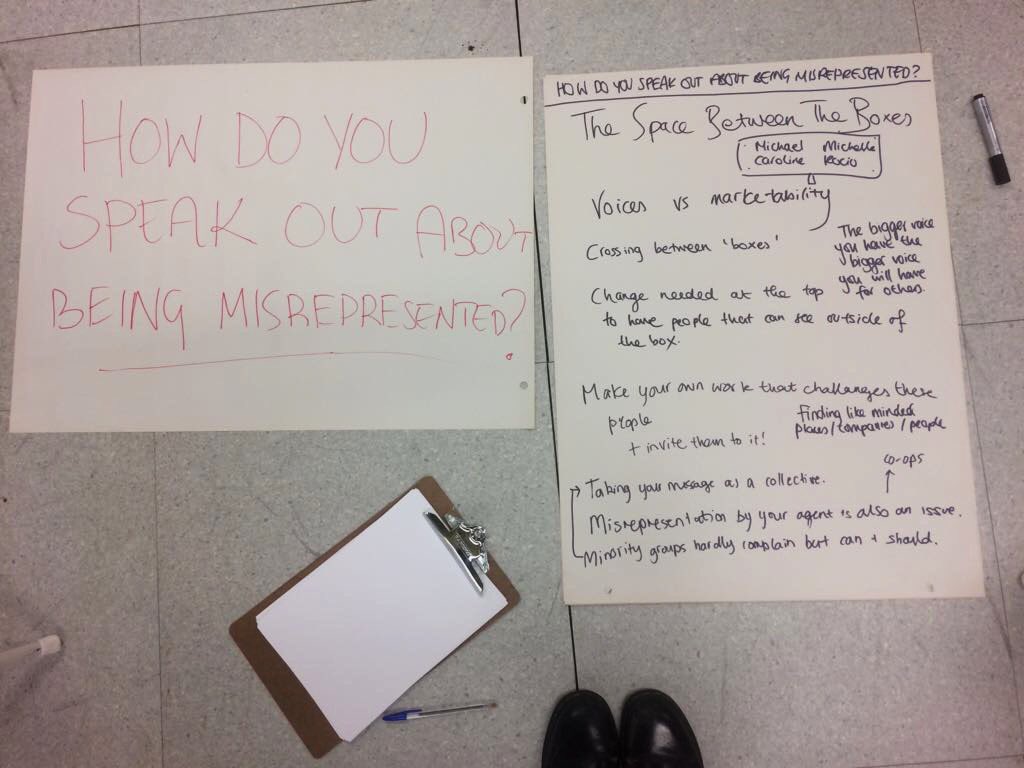 HOW DO YOU
SPEAK OUT ABOUT
BEING MISREPRESENTED?
HOW DO YOU SPEAK OUT ABOUT BEING MISREPRESENTED?
The Space Between The Boxes
Michael Michelle
Caroline Rocio
Voices vs marketability
Crossing between 'boxes'
The bigger voice
you have the
bigger voice
you will have
for others.
Change needed at the top
to have people that can see outside of
the box.
Make your own work that challenges these
people
+ invite them to it!
Finding like minded
places/companies/people
co-ops
Taking your message as a collective.
Misrepresentation by your agent is also an issue.
Minority groups hardly complain but can + should.